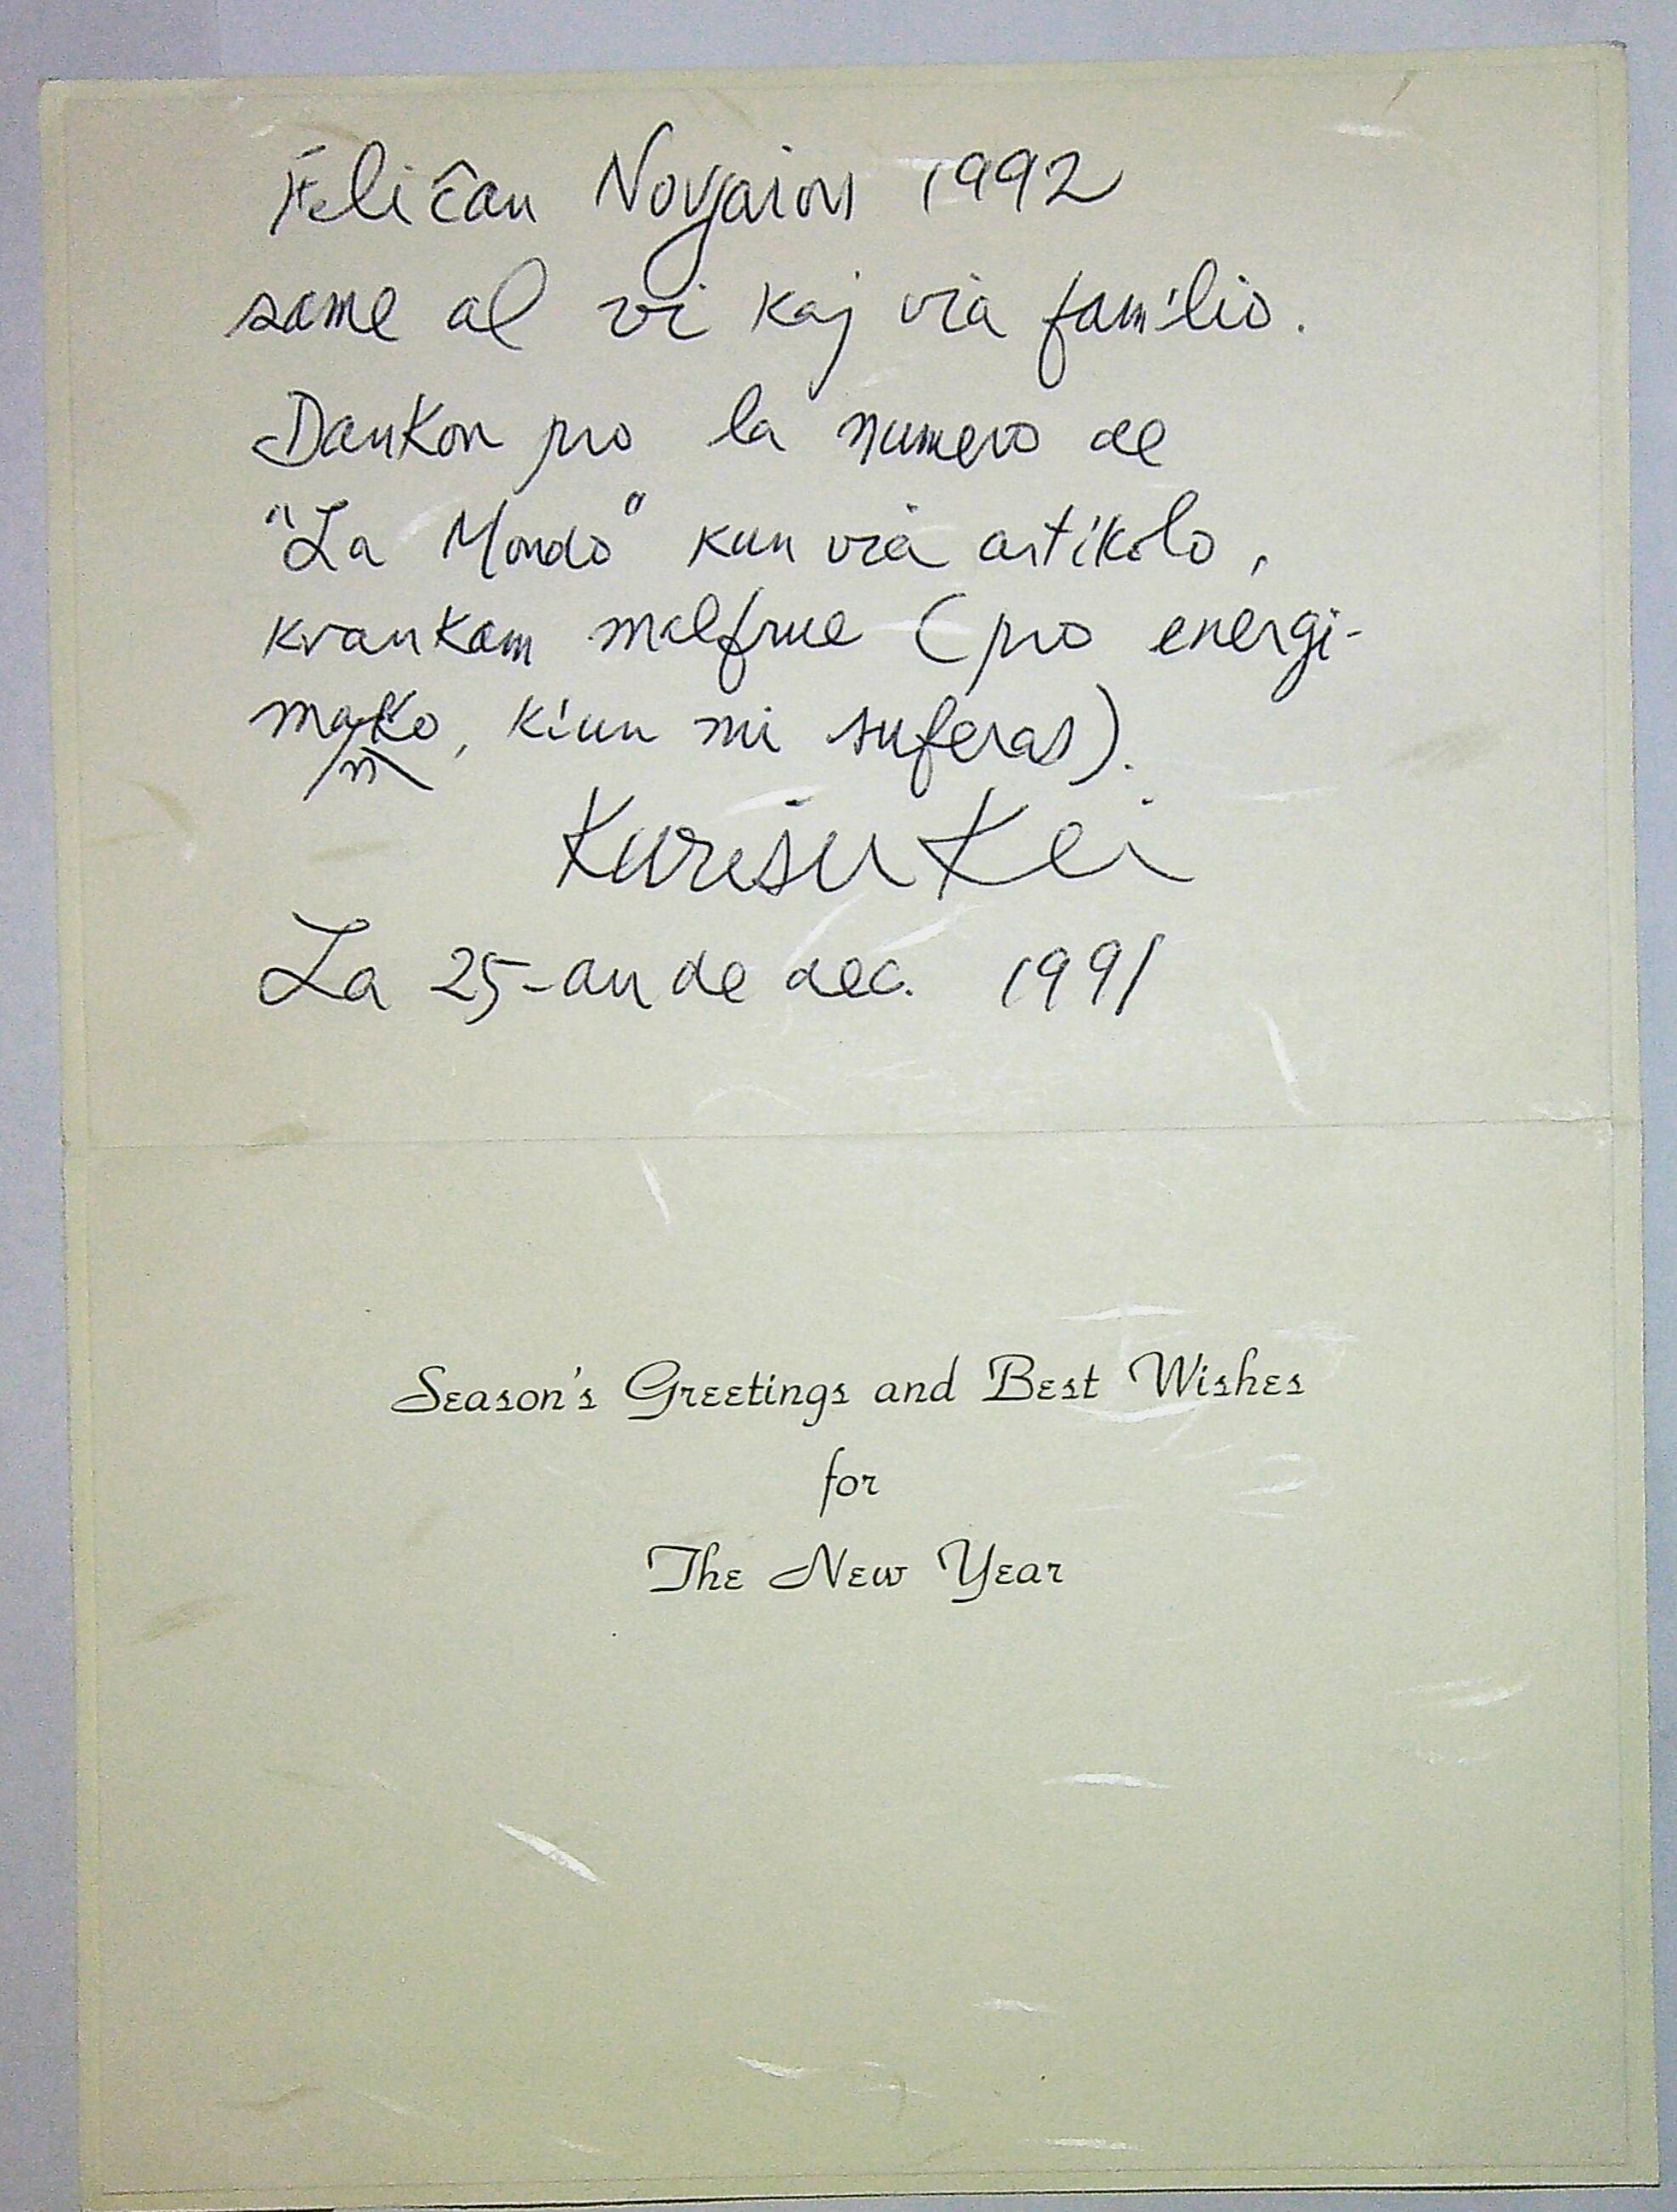 Feliĉan Novjaron 1992
same al vi kaj via familio.
Dankon pro la numero de
"La Mondo" kun via artikolo,
kvankam malfrue (pro energi-
manko, kiun mi suferas).
Kurisu Kei
La 25-an de dec. 1991
Season's Greetings and Best Wishes
for
The New Year